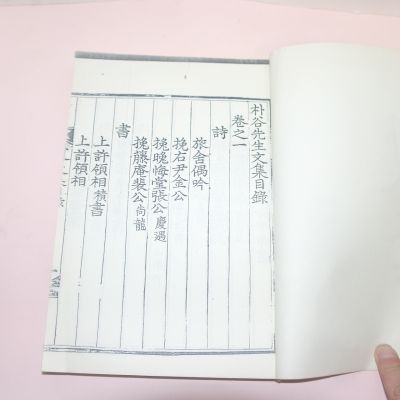 朴谷先生文集目錄
卷之一
詩
旅舍偶吟
挽右尹金公
挽晚悔堂張公慶遇
挽藤庵裴公尚龍
書
上許領相積書
上許領相